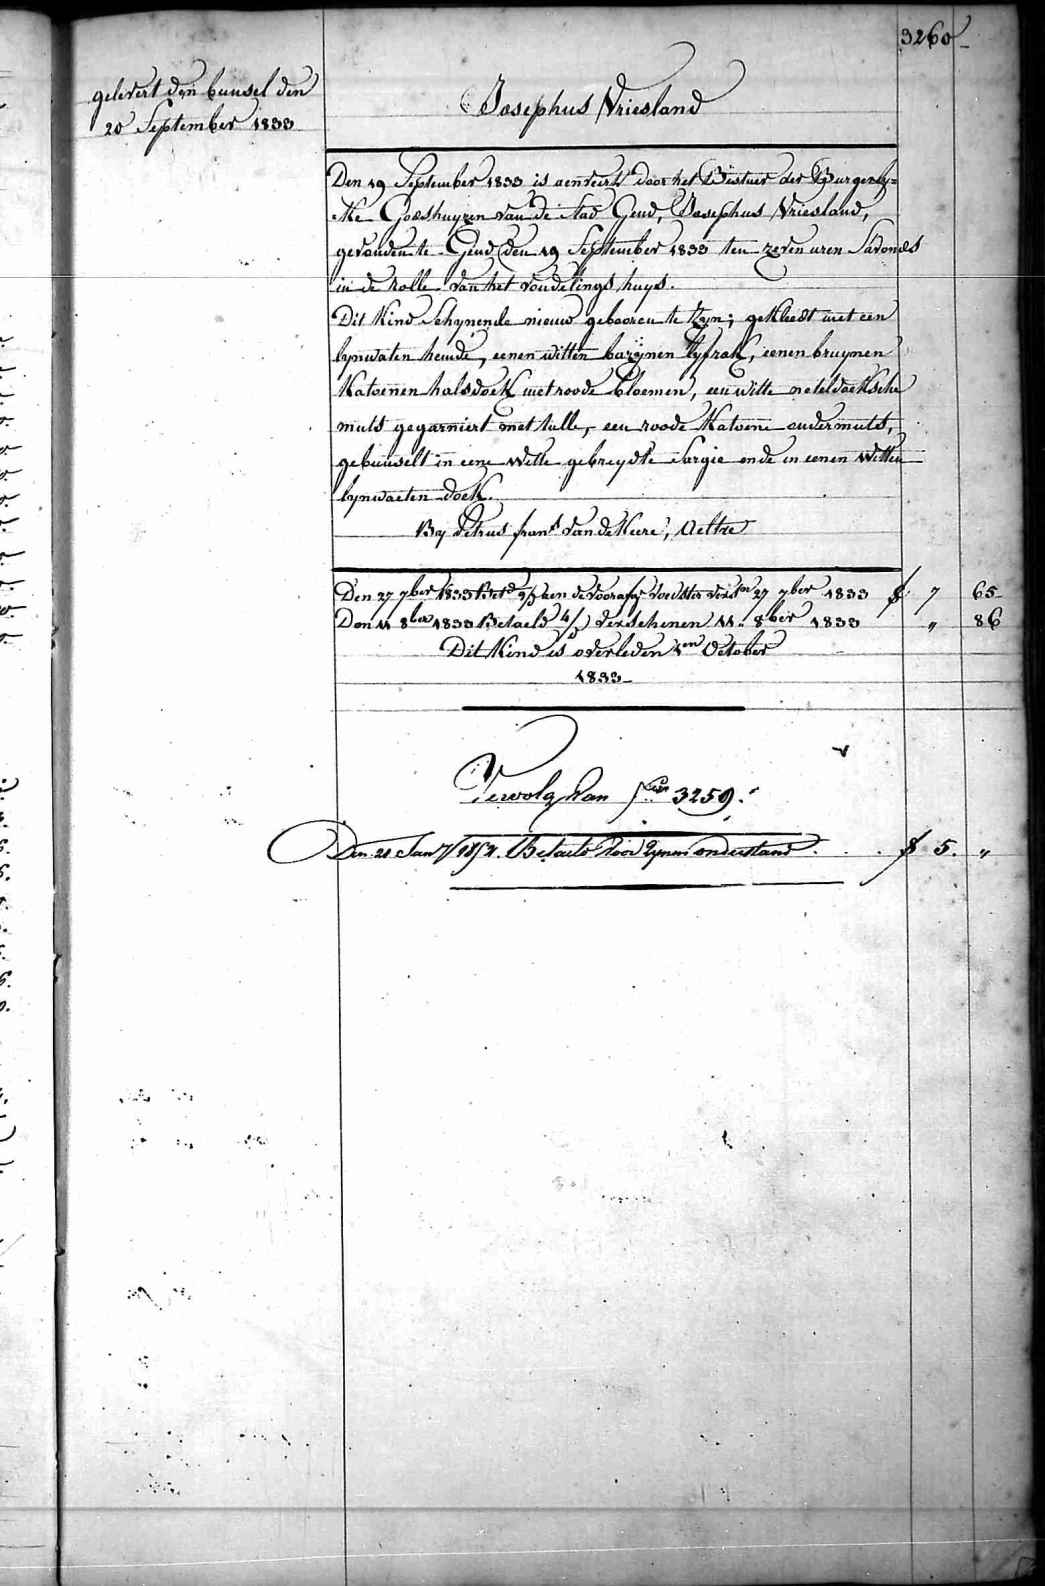 3260
gelevert den bunsel den
20 September 1833
Josephus Vriesland
Den 19 September 1833 is aenveert door het Bestuer der Burgerly=
ke Godshuyzen van de stad Gend, Josephus Vriesland,
gevonden te Gend den 19 September 1833 ten zeven uren savonds
in de rolle van het vondelings huys.
Dit Kind schynende nieuw gebooren te zyn; gekleedt met een
lynwaten hemde, eenen witten bazynen lyfrok, eenen bruynen
Katoenen halsdoek met roode bloemen, een witte neteldoeksche
muts gegarniert met tulle, een roode Katoene ondermuts,
gebunselt in eene witte gebreydte sargie ende in eenen witten
lynwaeten doek.
By Petrus frans van de Keere, Aeltre
Den 27 7ber 1833 Betd den voedster 27 7ber 1833 7 65
Den 11 8ber 1833 Betaeld verschenen 11 8ber 1833 " 86
Dit Kind is overleden 1en October
1833
Vervolg van 3259.
Den 21 Jan Betaeld voor onderstand . . . 5. "